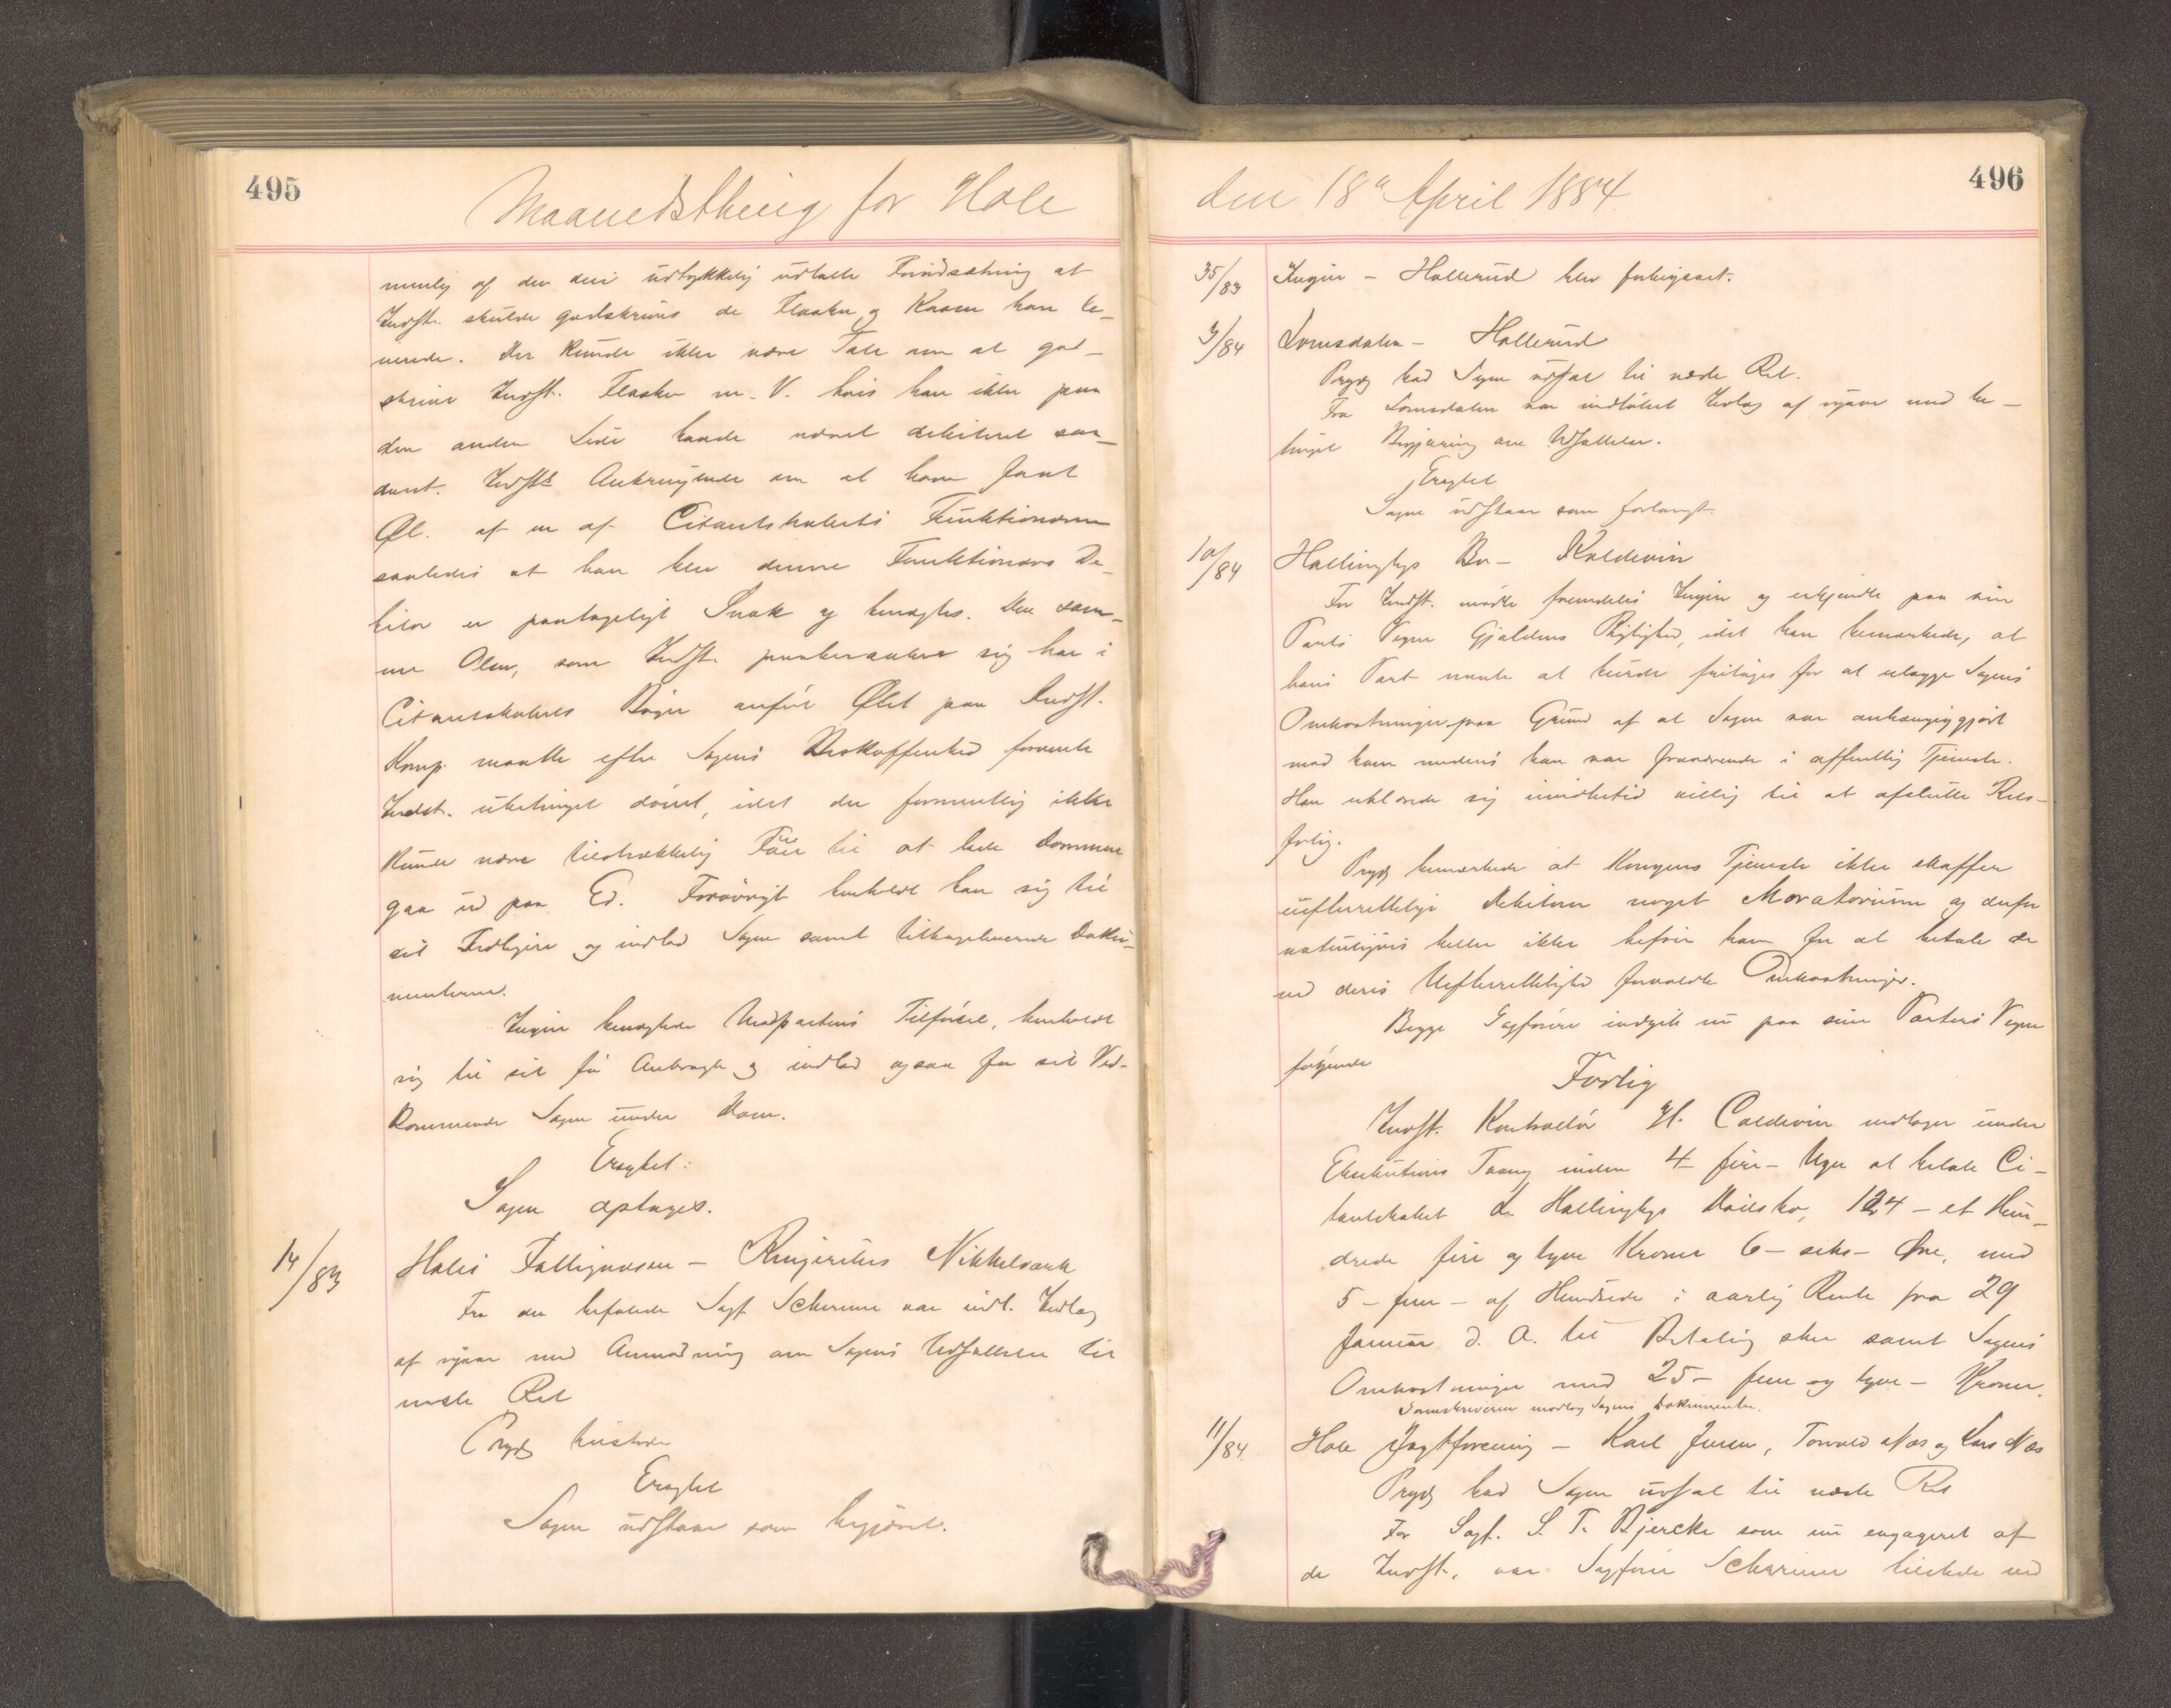 495
Maanedsthing for Hole
nemlig af den deri udtrykkelig udtalte Forudsætning at
Indst. skulde godskrives de Flasker og Kasser han le-
verede. Der kunde ikke være Tale om at god-
skrive Indst. Flasker m. V. hvis han ikke paa
den anden Side havde været debiteret saa-
dant. Indsts Anbringende om at have faaet
Øl af en af Citantskabets Funktionærer
saaledes at han blev denne Funktionærs De-
bitor er Snak og benægtes. Den sam-
me Olsen, som Indst. paaberaaber sig har i
Citantskabets Bøger anført Øllet paa Indst.
Komp. maatte efter Sagens Beskaffenhed forvente
Indst. ubetinget dømt, idet der formentlig ikke
kunde være tilstrækkelig Føie til at lade Dommen
gaa ud paa Ed. Forøvrigt henholdt han sig til
sit Tidligere og indlod Sagen samt tilbageleverede Doku-
menterne.
Ingier benægtede Modpartens Tilførsel, henholdt
sig til sit før Anbragte og indlod ogsaa for sit Ved-
kommende Sagen under Dom.
Eragtet:
Sagen optages.
14/83 Halvor - Ringeriks Nikkelværk
Fra den befalede Sagf. Scheruve var indl. Indlæg
af igaar med Anmodning om Sagens Udsættelse til
næste Ret
Prydz tilstede
Eragtet
Sagen udstaar som begjæret.
den 18de April 1884.
496
35/83 Ingier - Hallerud blev forbigaaet.
3/84 Lomsdalen - Hallerud
Prydz bad Sagen udsat til næste Ret.
Fra Lomsdalen var indløbet Indlæg af igaar med be-
tinget Begjæring om Udsættelse.
Eragtet
Sagen udstaar som forlangt.
10/84 Hallingbys Bo - Koldevin
For Indst. mødte fremdeles Ingier og erkjendte paa sin
Parts Vegne Gjældens Rigtighed, idet han bemærkede, at
hans Part mente at burde fritages for at udlægge Sagens
Omkostninger paa Grund af at Sagen var anhængiggjort
mod ham medens han var fraværende i offentlig Tjeneste.
Han erklærede sig imidlertid villig til at afslutte Rets-
forlig.
Prydz bemærkede at Kongens Tjeneste ikke skaffer
uefterrettelige Debitorer noget Moratorium og derfor
naturligvis heller ikke befrier ham for at betale de
ved deres Uefterrettelighed forvoldte Omkostninger.
Begge Sagførere indgik nu paa sine Parters Vegne
følgende
Forlig
Indst. Kontrollør H. Coldevin vedtager under
Exekutions Tvang inden 4 - fire - Uger at betale Ci-
tantskabet de Hallingbys Dødsbo, 124 - et Hun-
drede fire og tyve Kroner 6 - seks - Øre, med
5 - fem - af Hundrede i aarlig Rente fra 29
Januar d. A. til Betaling sker samt Sagens
Omkostninger med 25 - fem og tyve - Kroner.
Sorenskriveren modtog Sagens Dokumenter.
11/84. Hole Jagtforening - Karl Jensen, Torvald Næs og Lars Næs
Prydz bad Sagen udsat til næste Ret
For Sagf. S. T. Bjercke som nu engageret af
de Indst. var Sagfører Scheruve tilstede ved